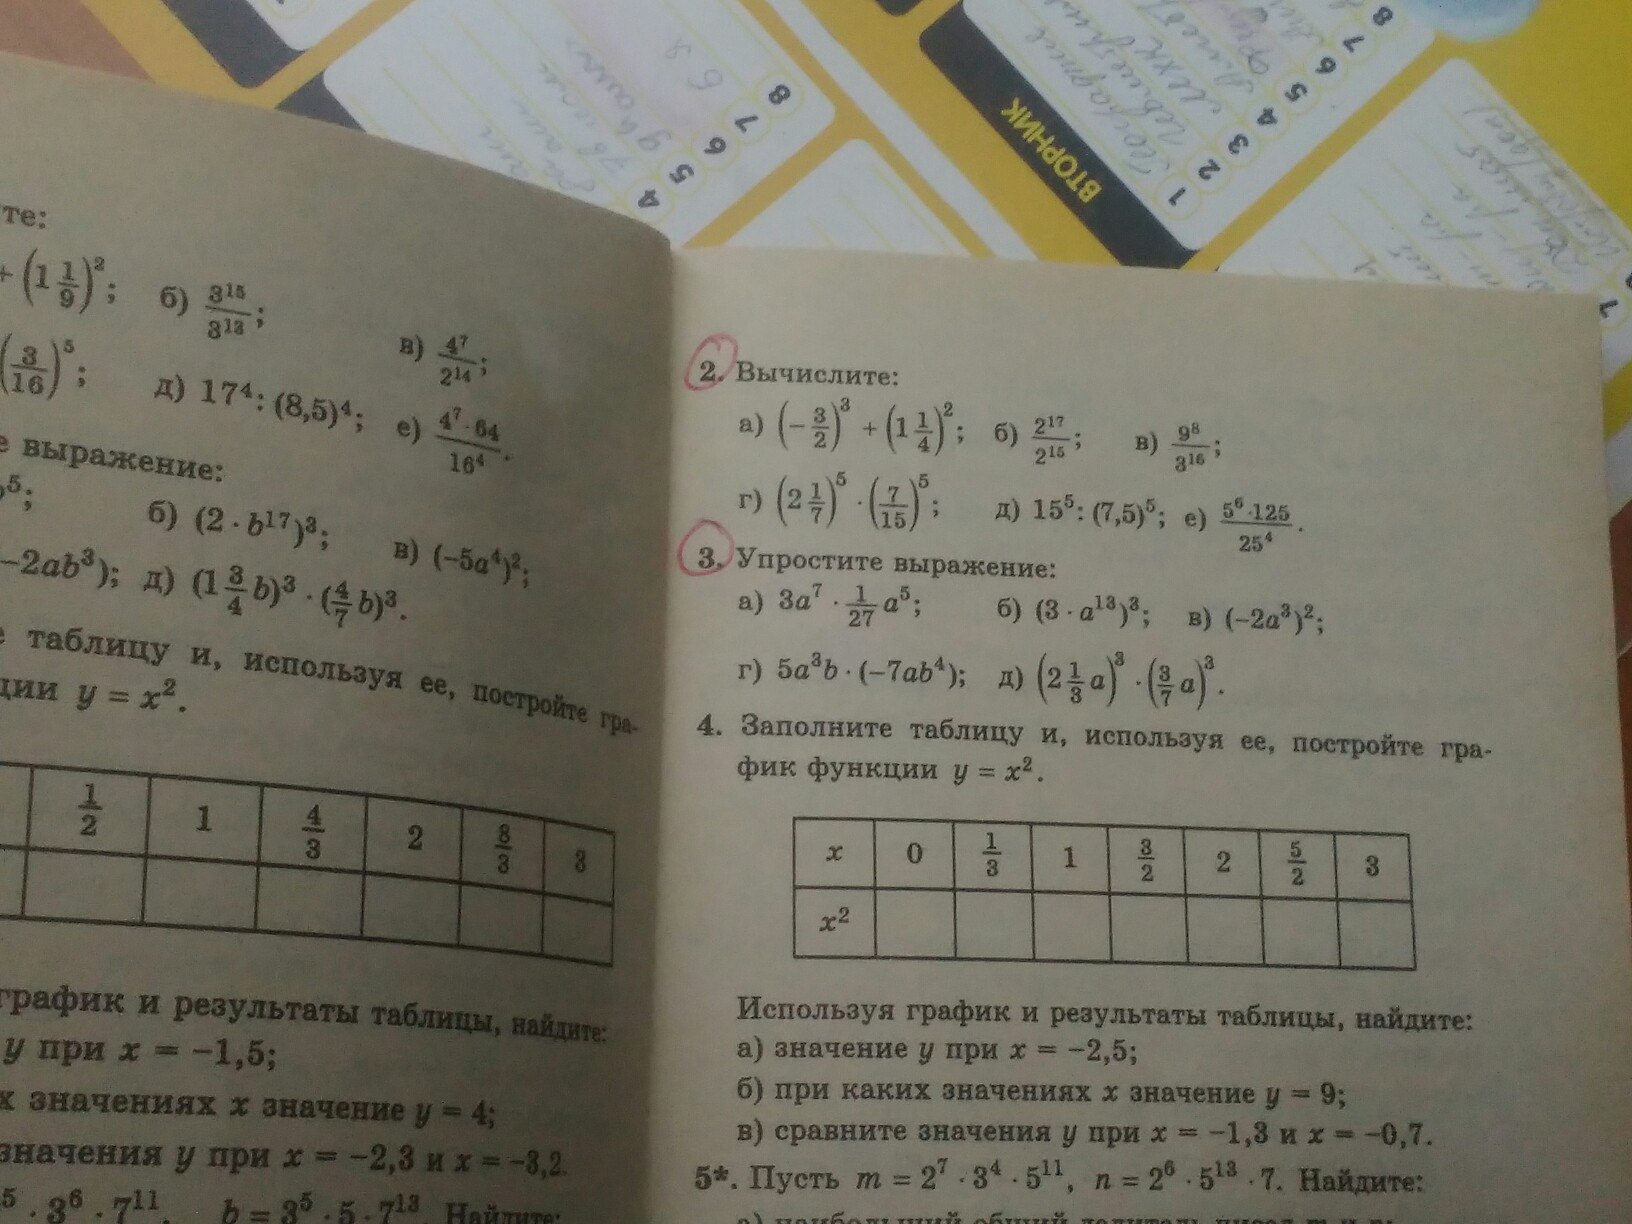 те:
+ (1 1/9)²; б) 3¹⁵/3¹³; в) 4⁷/2¹⁴;
(3/16)⁵; д) 17⁴ : (8,5)⁴; е) 4⁷·64/16⁴.
е выражение:
⁵; б) (2 · b¹⁷)³; в) (−5a⁴)²;
−2ab³); д) (1 3/4 b)³ · (4/7 b)³.
е таблицу и, используя ее, постройте гра-
ции y = x².
1/2 1 4/3 2 8/3 3
график и результаты таблицы, найдите:
y при x = −1,5;
х значениях x значение y = 4;
значения y при x = −2,3 и x = −3,2.
⁵ · 3⁶ · 7¹¹, b = 3⁵ · 5 · 7¹³. Найдите:
2. Вычислите:
а) (−3/2)³ + (1 1/4)²; б) 2¹⁷/2¹⁵; в) 9⁸/3¹⁶;
г) (2 1/7)⁵ · (7/15)⁵; д) 15⁵ : (7,5)⁵; е) 5⁶·125/25⁴.
3. Упростите выражение:
а) 3a⁷ · 1/27 a⁵; б) (3 · a¹³)³; в) (−2a³)²;
г) 5a³b · (−7ab⁴); д) (2 1/3 a)³ · (3/7 a)³.
4. Заполните таблицу и, используя ее, постройте гра-
фик функции y = x².
x 0 1/3 1 3/2 2 5/2 3
x²
Используя график и результаты таблицы, найдите:
а) значение y при x = −2,5;
б) при каких значениях x значение y = 9;
в) сравните значения y при x = −1,3 и x = −0,7.
5*. Пусть m = 2⁷ · 3⁴ · 5¹¹, n = 2⁶ · 5¹³ · 7. Найдите:
а) наибольший общий делитель чисел m и n;
ВТОРНИК
1
2
3
4
5
6
7
8
4
5
6
7
8
1